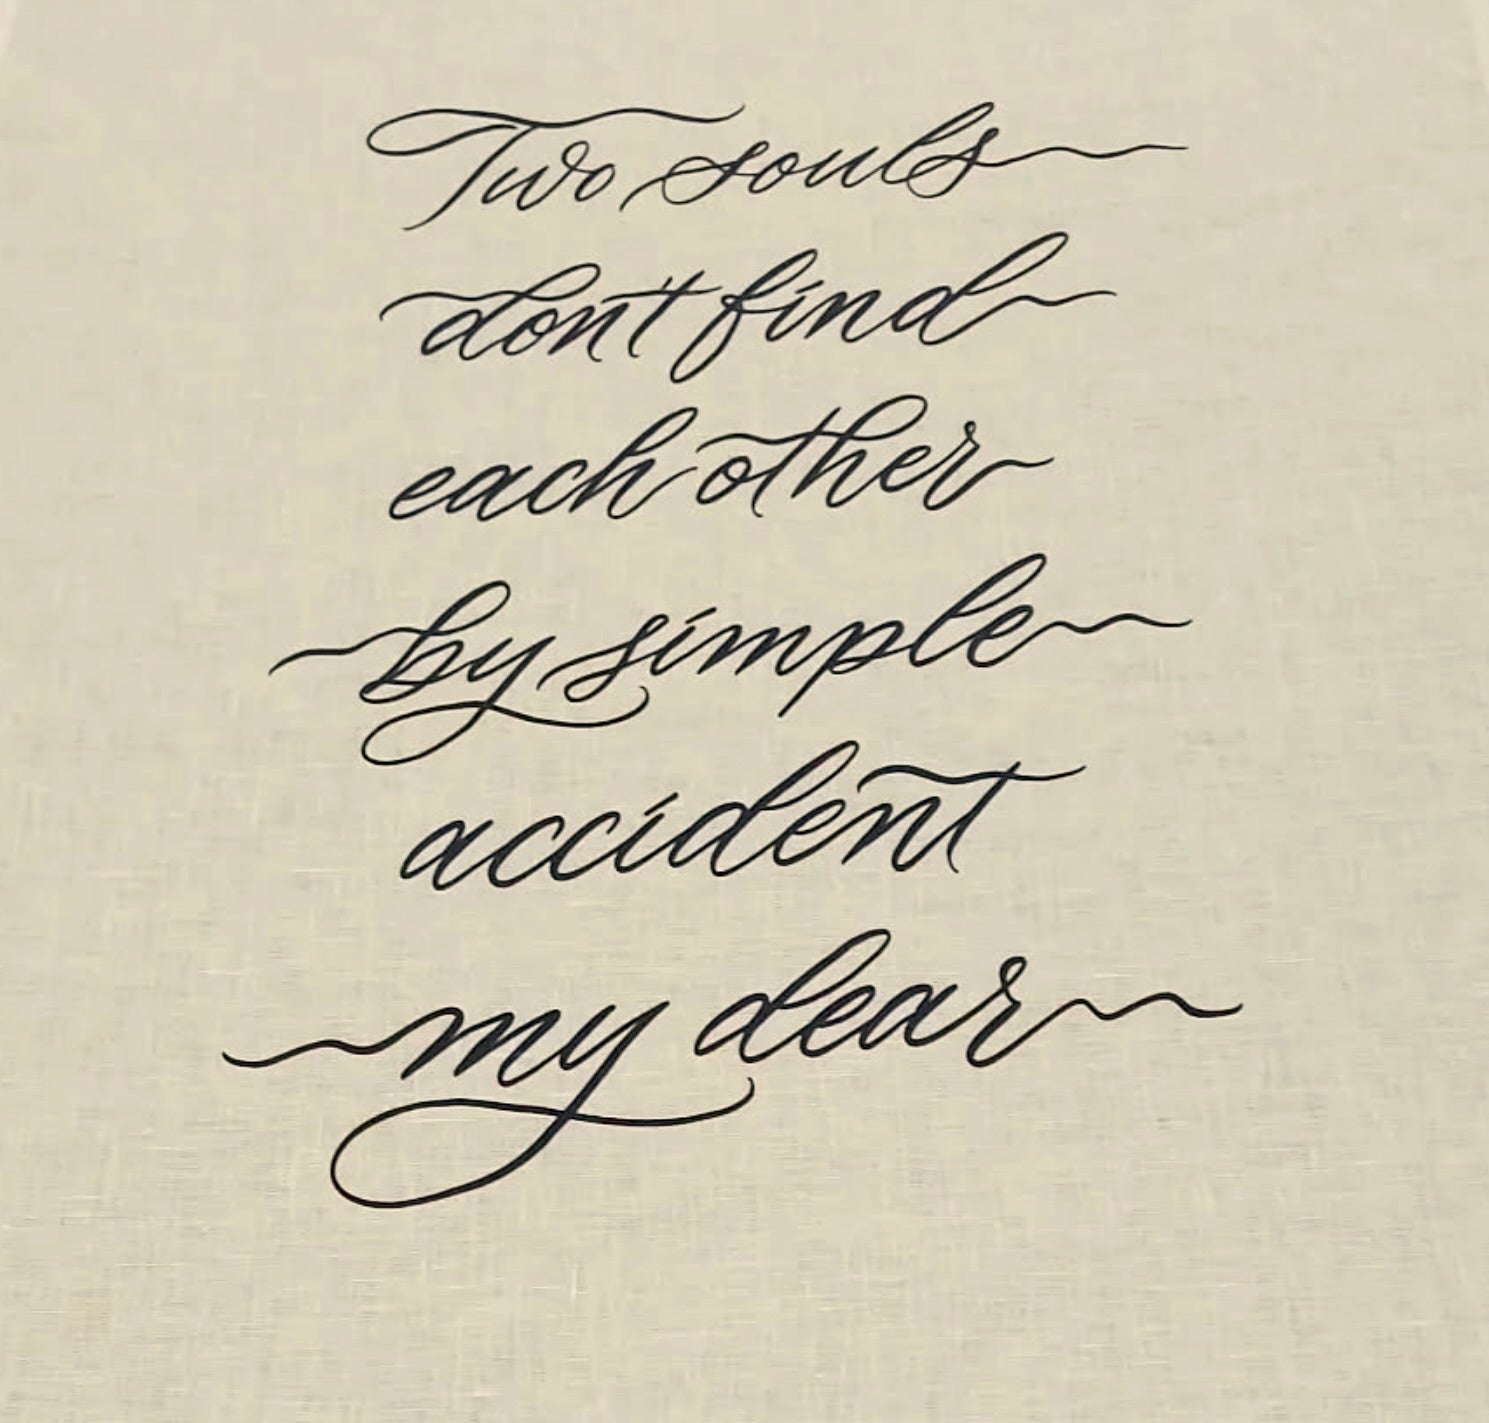 Two souls
don't find
each other
by simple
accident
my dear